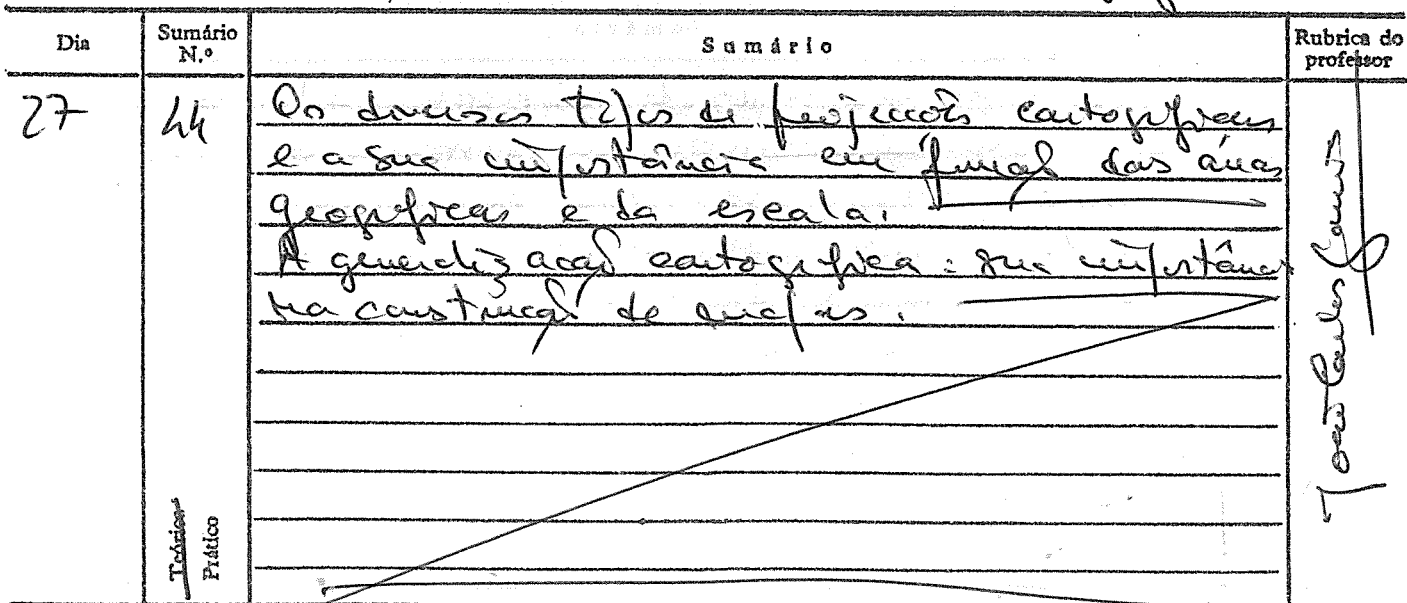 Dia
Sumário N.º
Sumário
Rubrica do professor
27
44
Os diversos tipos de projecções cartográficas
e a sua importância em função das áreas
geográficas e da escala.
A generalização cartográfica: sua importância
na construção de mapas.
João Carlos
Teórico
Prático